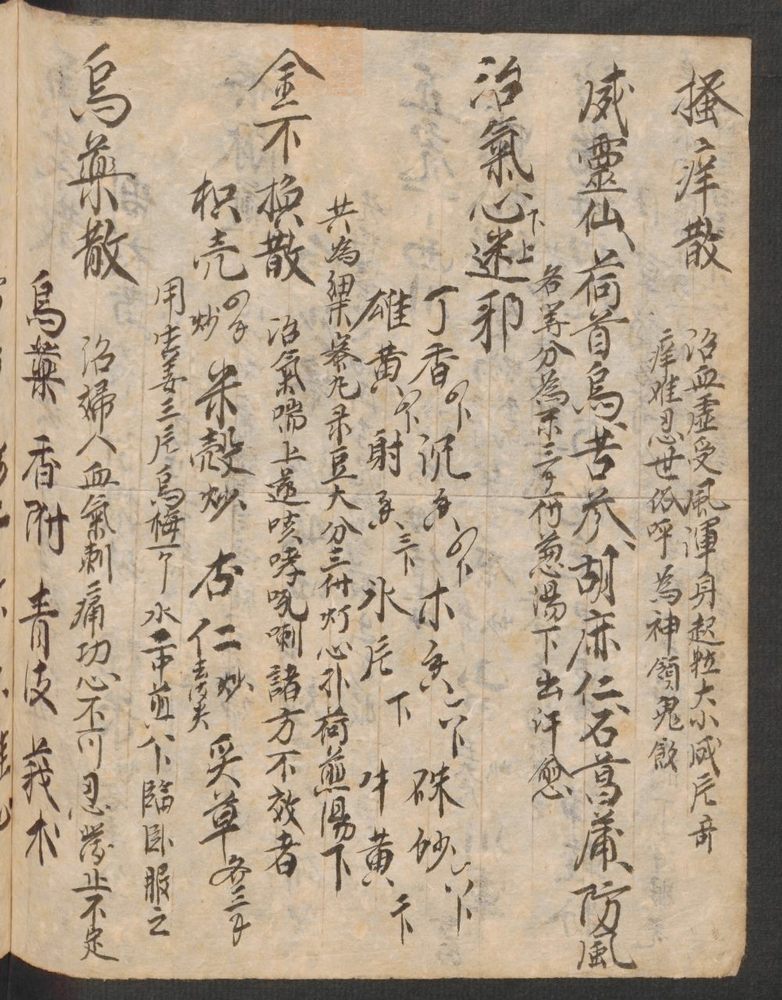 搔痒散
治血虛受風渾身起粒大小成片奇
痒难忍世俗呼為神領鬼飯
威靈仙荷首烏苦參胡麻仁石菖蒲防風
各等分為末三分付葱湯下出汗愈
治氣心下上迷邪
丁香 木香 硃砂
雄黃 射香 氷片 牛黃
共為細末丸菉豆大分三付灯心薄荷煎湯下
金不換散
治氣喘上逆咳哮吼喇諸方不效者
枳壳炒 米殼炒 杏仁炒去皮尖 炙草各三
用生姜三片烏梅一个水二中煎八下臨臥服之
烏藥散
治婦人血氣刺痛功心不可忍發止不定
烏藥 香附 青皮 莪术